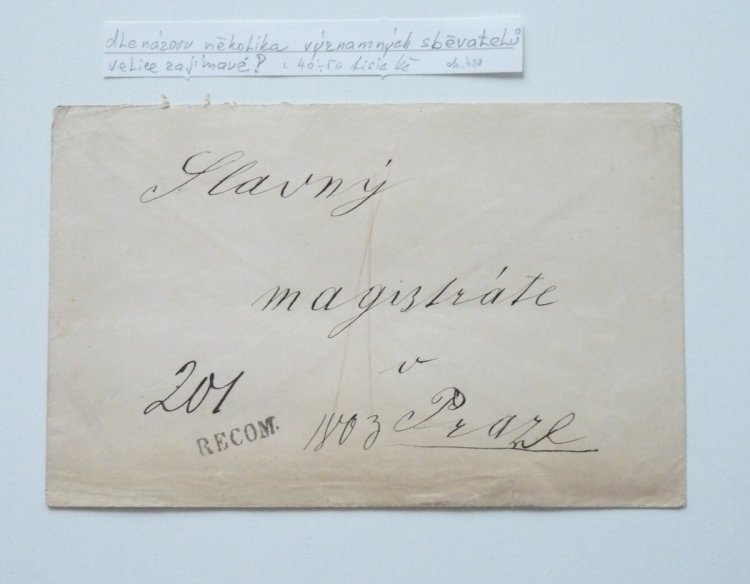 dle názoru několika významných sběvatelů
velice zajímavé? i 40-50 tisíc kč
Slavný
magistráte
v
201
RECOM.
1803 Praze